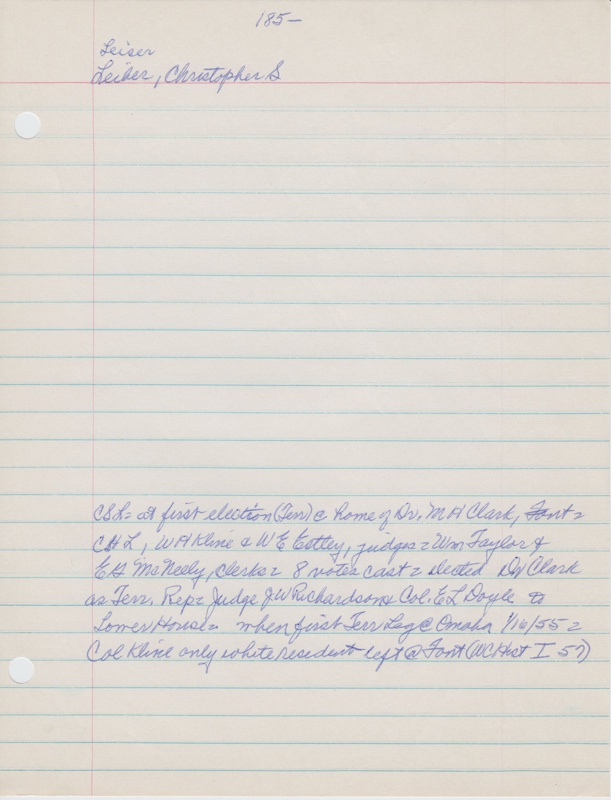 185-
Leiser
Leiber, Christopher S
CSL= at first election (Terr) @ home of Dr. M H Clark, Font=
CHL, W H Kline & W E Estley, judges = Wm Taylor &
E G McNeely, clerks = 8 votes cast = elected Dr Clark
as Terr. Rep = Judge J W Richardson & Col. E L Doyle to
Lower House = when first Terr Leg @ Omaha 1/16/55 =
Col Kline only white resident left @ Font (WC Hist I 57)